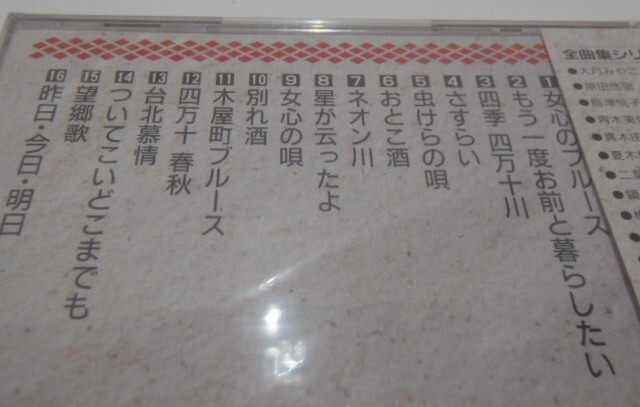 1 女心のブルース
2 もう一度お前と暮らしたい
3 四季 四万十川
4 さすらい
5 虫けらの唄
6 おとこ酒
7 ネオン川
8 星が云ったよ
9 女心の唄
10 別れ酒
11 木屋町ブルース
12 四万十 春秋
13 台北慕情
14 ついてこいどこまでも
15 望郷歌
16 昨日・今日・明日
全曲集シリ
●大月みやこ
●原田悠里